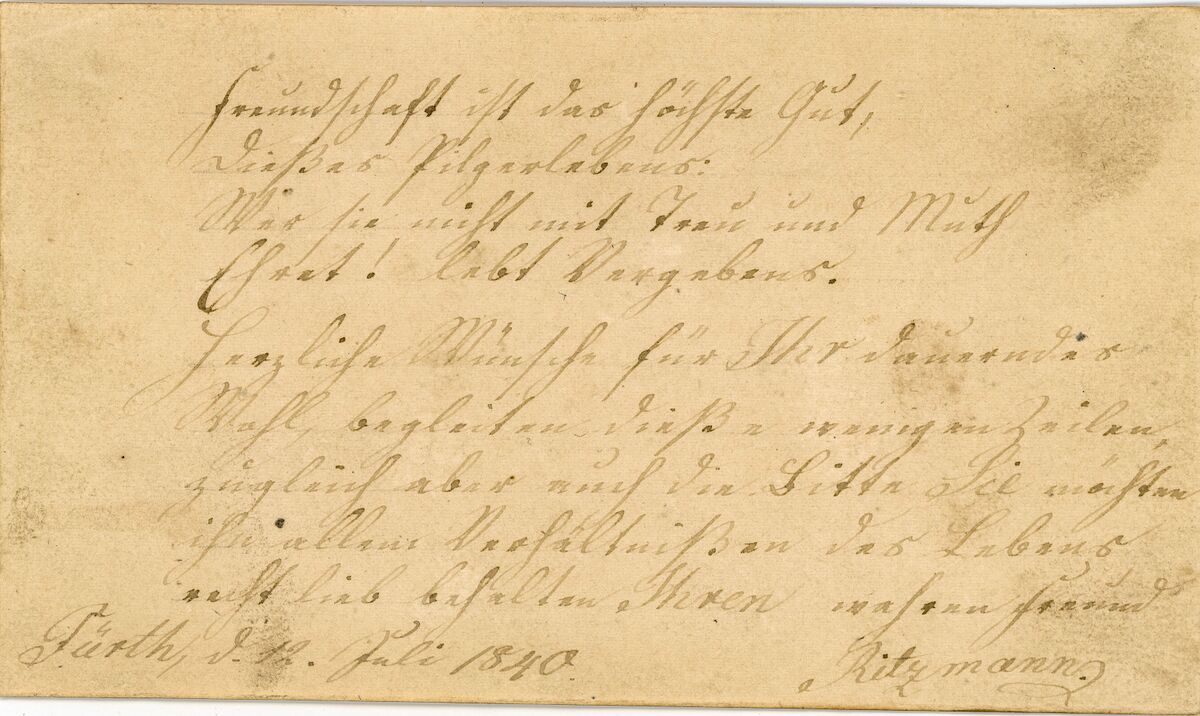 Freundschaft ist das höchste Gut,
Dießes Pilgerlebens:
Wer sie nicht mit Treu und Muth
Ehret! lebt Vergebens.
Herzliche Wünsche für Ihr dauerndes
Wohl, begleiten dieße wenigen Zeilen,
zugleich aber auch die Bitte Sie möchten
ihn allen Verhältnißen des Lebens
recht lieb behalten Ihren wahren Freund
Fürth, d. 12. Juli 1840.
Ritzmann.